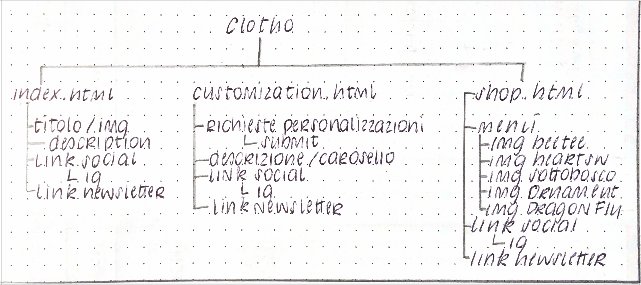 Clotho
index.html
titolo/img
description
link social
ig
link newsletter
customization.html
richieste personalizzazioni
submit
descrizione/carosello
link social
ig
link newsletter
shop.html
menù
img beetee
img heartsw
img sottobosco
img ornament
img Dragon Fly
link social
ig
link newsletter